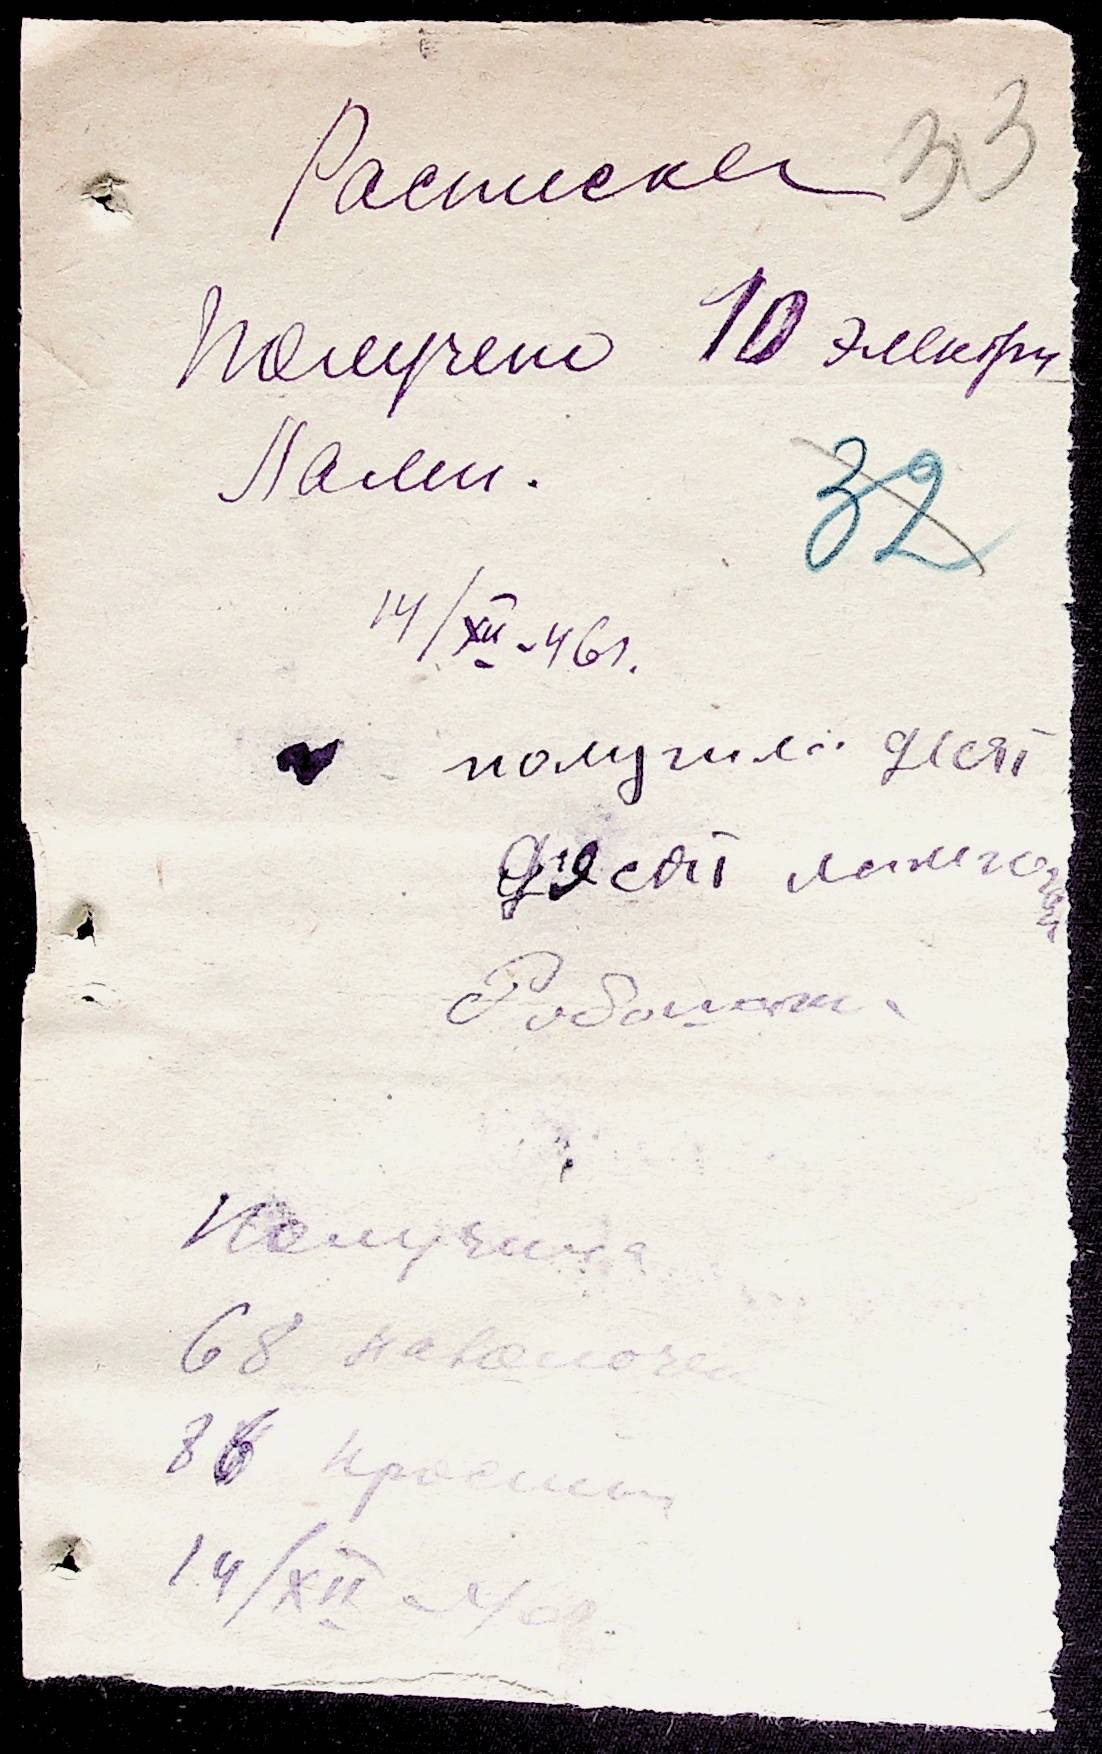 Расписка 33
Получено 10 электри
Ламп.
32
14/XII-46г.
получила десят
десят
Получила
68 наволочек
86 простын
14/XII-46г.